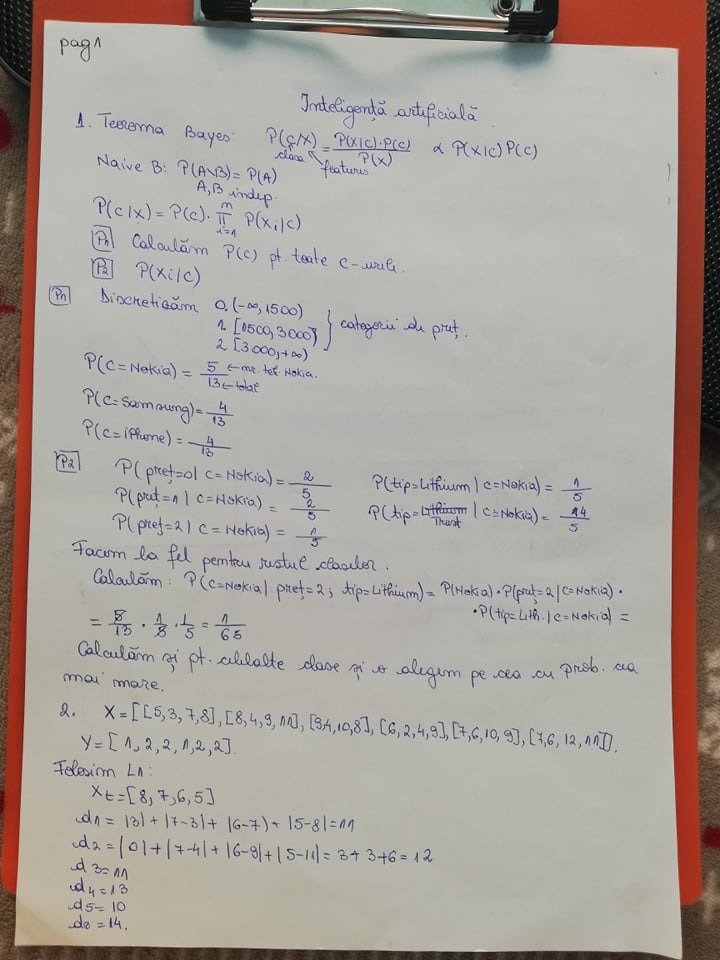 pag 1
Inteligență artificială
1. Teorema Bayes: P(c/X) = P(X|c)·P(c) / P(X) ∝ P(X|c) P(c)
clasa features
Naive B: P(A\B) = P(A)
A, B indep.
P(c|x) = P(c)· ∏ i=1 m P(xi|c)
P1 Calculăm P(c) pt. toate c-urile.
P2 P(xi|c)
P1 Discretizăm 0. (-∞, 1500)
1. [1500, 3000)
2 [3000, +∞)
} categorii de preț.
P(c=Nokia) = 5/13 ← nr. tel Nokia. ← total
P(c=Samsung) = 4/13
P(c=iPhone) = 4/13
P2 P(preț=0 | c=Nokia) = 2/5 P(tip=Lithium | c=Nokia) = 1/5
P(preț=1 | c=Nokia) = 2/5 P(tip= | c=Nokia) = 4/5
P(preț=2 | c=Nokia) = 1/5
Facem la fel pentru restul claselor.
Calculăm: P(c=Nokia | preț=2, tip=Lithium) = P(Nokia)·P(preț=2 | c=Nokia)·
·P(tip=Lith. | c=Nokia) =
= 5/13 · 1/5 · 1/5 = 1/65
Calculăm și pt. celelalte clase și o alegem pe cea cu prob. cea
mai mare.
2. X = [[5,3,7,8], [8,4,9,11], [9,4,10,8], [6,2,4,9], [7,6,10,9], [7,6,12,11]].
Y = [1, 2, 2, 1, 2, 2].
Folosim L1:
Xt = [8, 7, 6, 5]
d1 = |3| + |7-3| + |6-7| + |5-8| = 11
d2 = |0| + |7-4| + |6-9| + |5-11| = 3+3+6 = 12
d3 = 11
d4 = 13
d5 = 10
d6 = 14.